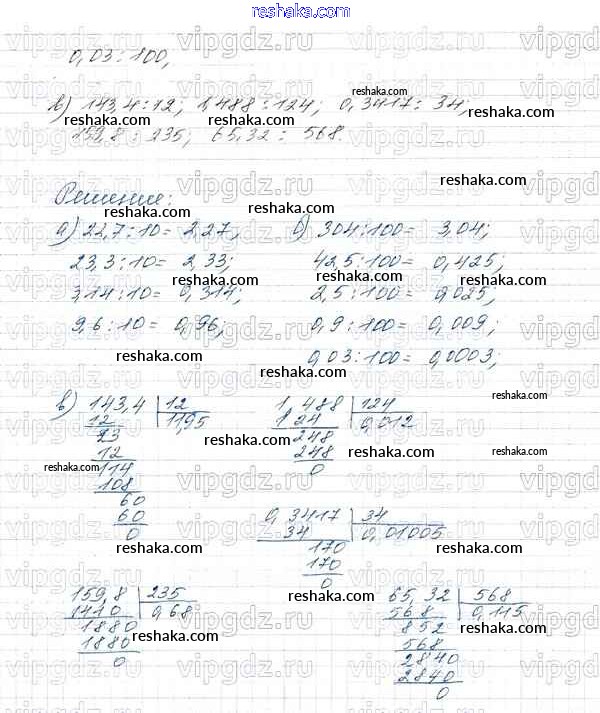 reshaka.com
0,03 : 100,
в) 143,4 : 12; 1,488 : 124; 0,3417 : 34;
159,8 : 235; 65,32 : 568.
Решение:
а) 22,7 : 10 = 2,27, б) 304 : 100 = 3,04;
23,3 : 10 = 2,33; 42,5 : 100 = 0,425;
3,14 : 10 = 0,314; 2,5 : 100 = 0,025;
9,6 : 10 = 0,96; 0,9 : 100 = 0,009;
0,03 : 100 = 0,0003;
в) 143,4 12 1,488 124
12 11,95 124 0,012
23 248
12 248
114 0
108
60
60
0
0,3417 34
34 0,01005
170
170
0
159,8 235 65,32 568
1410 0,68 568 0,115
1880 852
1880 568
0 2840
2840
0
vipgdz.ru
reshaka.com